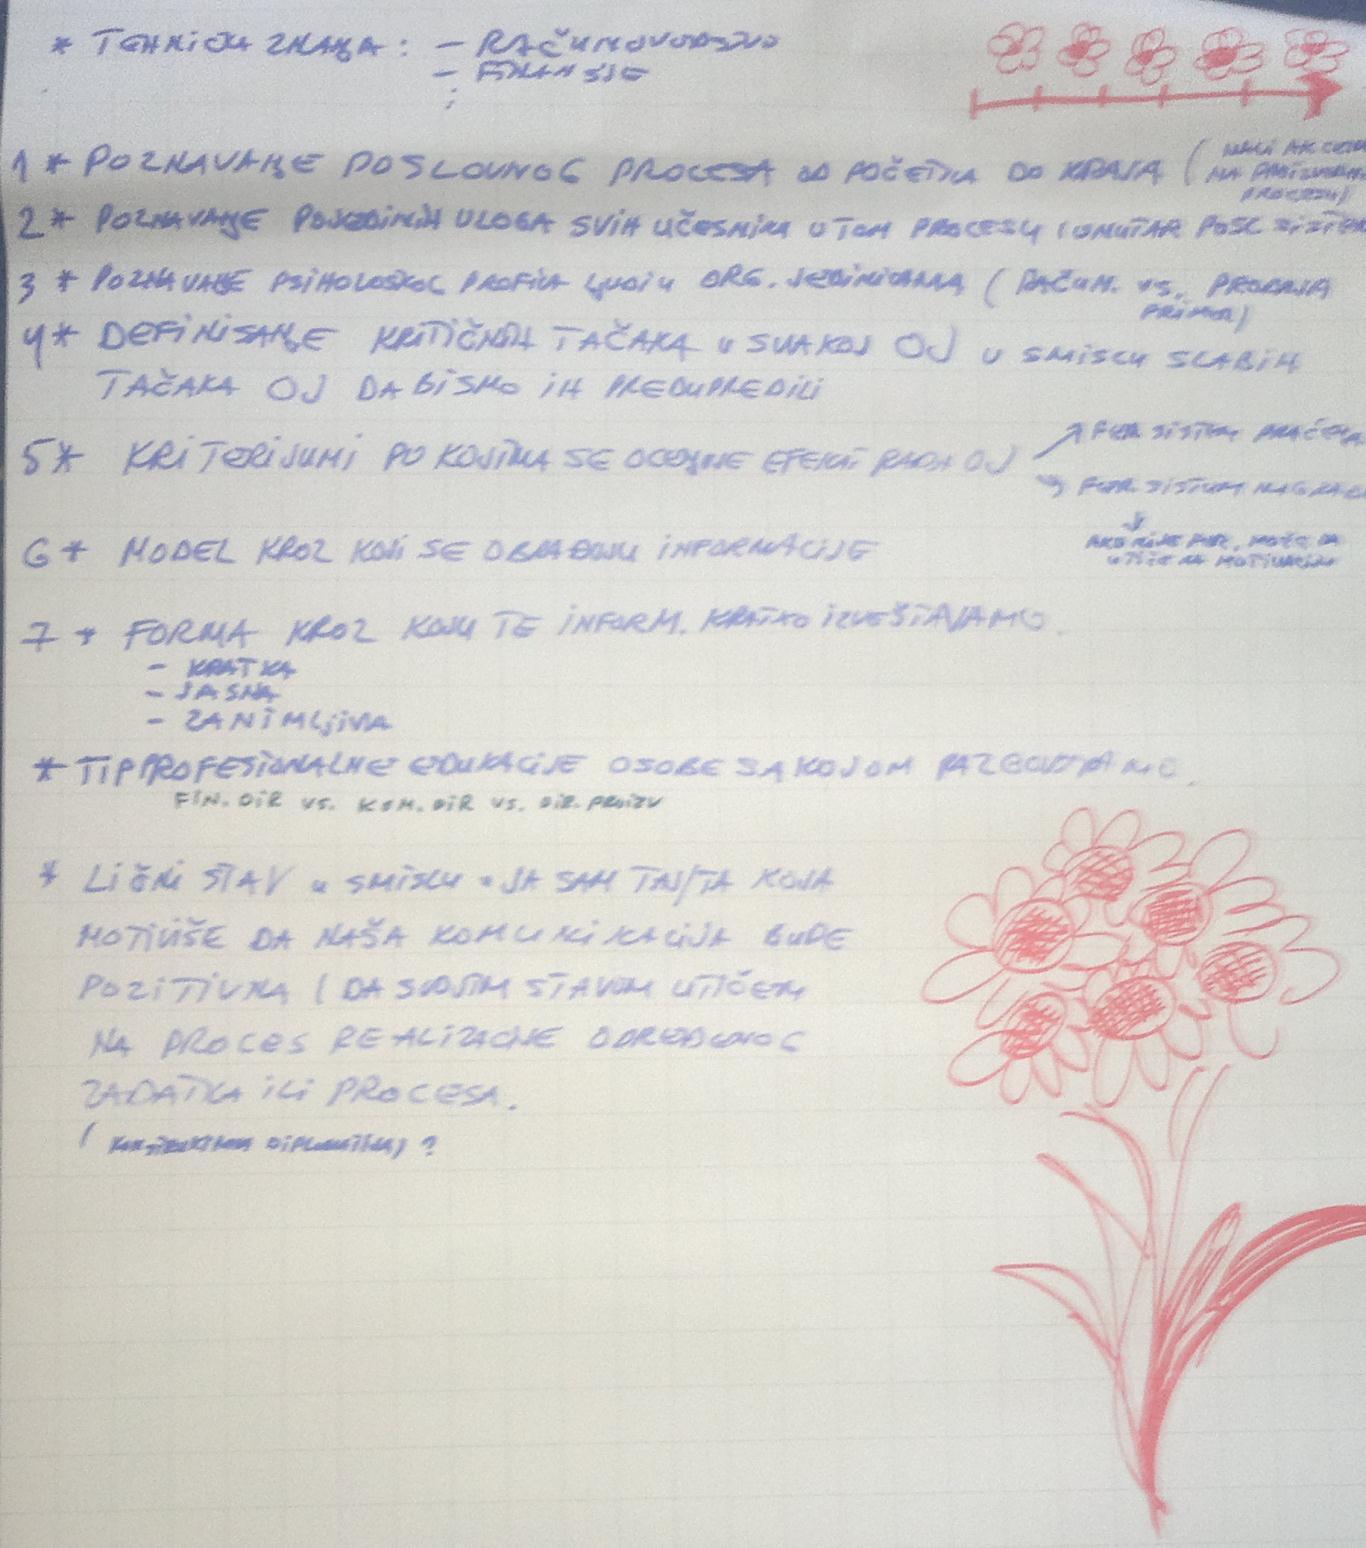 * TEHNIČKA ZNANJA : - RAČUNOVODSTVO
- FINANSIJE
:
1 * POZNAVANJE POSLOVNOG PROCESA OD POČETKA DO KRAJA (
NA PROIZVODNI
PROCESU)
2 * POZNAVANJE POJEDINIH ULOGA SVIH UČESNIKA U TOM PROCESU (UNUTAR POSL. SISTEMA
3 * POZNAVANJE PSIHOLOŠKOG PROFILA LJUDI U ORG. JEDINICAMA ( RAČUN. VS. PRODAJA
PRIMER)
4 * DEFINISANJE KRITIČNIH TAČAKA U SVAKOJ OJ U SMISLU SLABIH
TAČAKA OJ DA BISMO IH PREDUPREDILI
5 * KRITERIJUMI PO KOJIMA SE OCENJUJE EFEKAT RADA OJ
FER SISTEM PRAĆENJA
FER SISTEM NAGRAĐ
AKO NIJE FER, MOŽE DA
UTIČE NA MOTIVACIJU
6 * MODEL KROZ KOJI SE OBRAĐUJU INFORMACIJE
7 * FORMA KROZ KOJU TE INFORM. KRATKO IZVEŠTAVAMO.
- KRATKA
- JASNA
- ZANIMLJIVA
* TIP PROFESIONALNE EDUKACIJE OSOBE SA KOJOM RAZGOVARAMO.
FIN. DIR VS. KOM. DIR VS. DIR. PROIZV
* LIČNI STAV U SMISLU "JA SAM TAJ/TA KOJA
MOTIVIŠE DA NAŠA KOMUNIKACIJA BUDE
POZITIVNA ( DA SVOJIM STAVOM UTIČEM
NA PROCES REALIZACIJE ODREĐENOG
ZADATKA ILI PROCESA.
( DIPLOMATIJA) ?